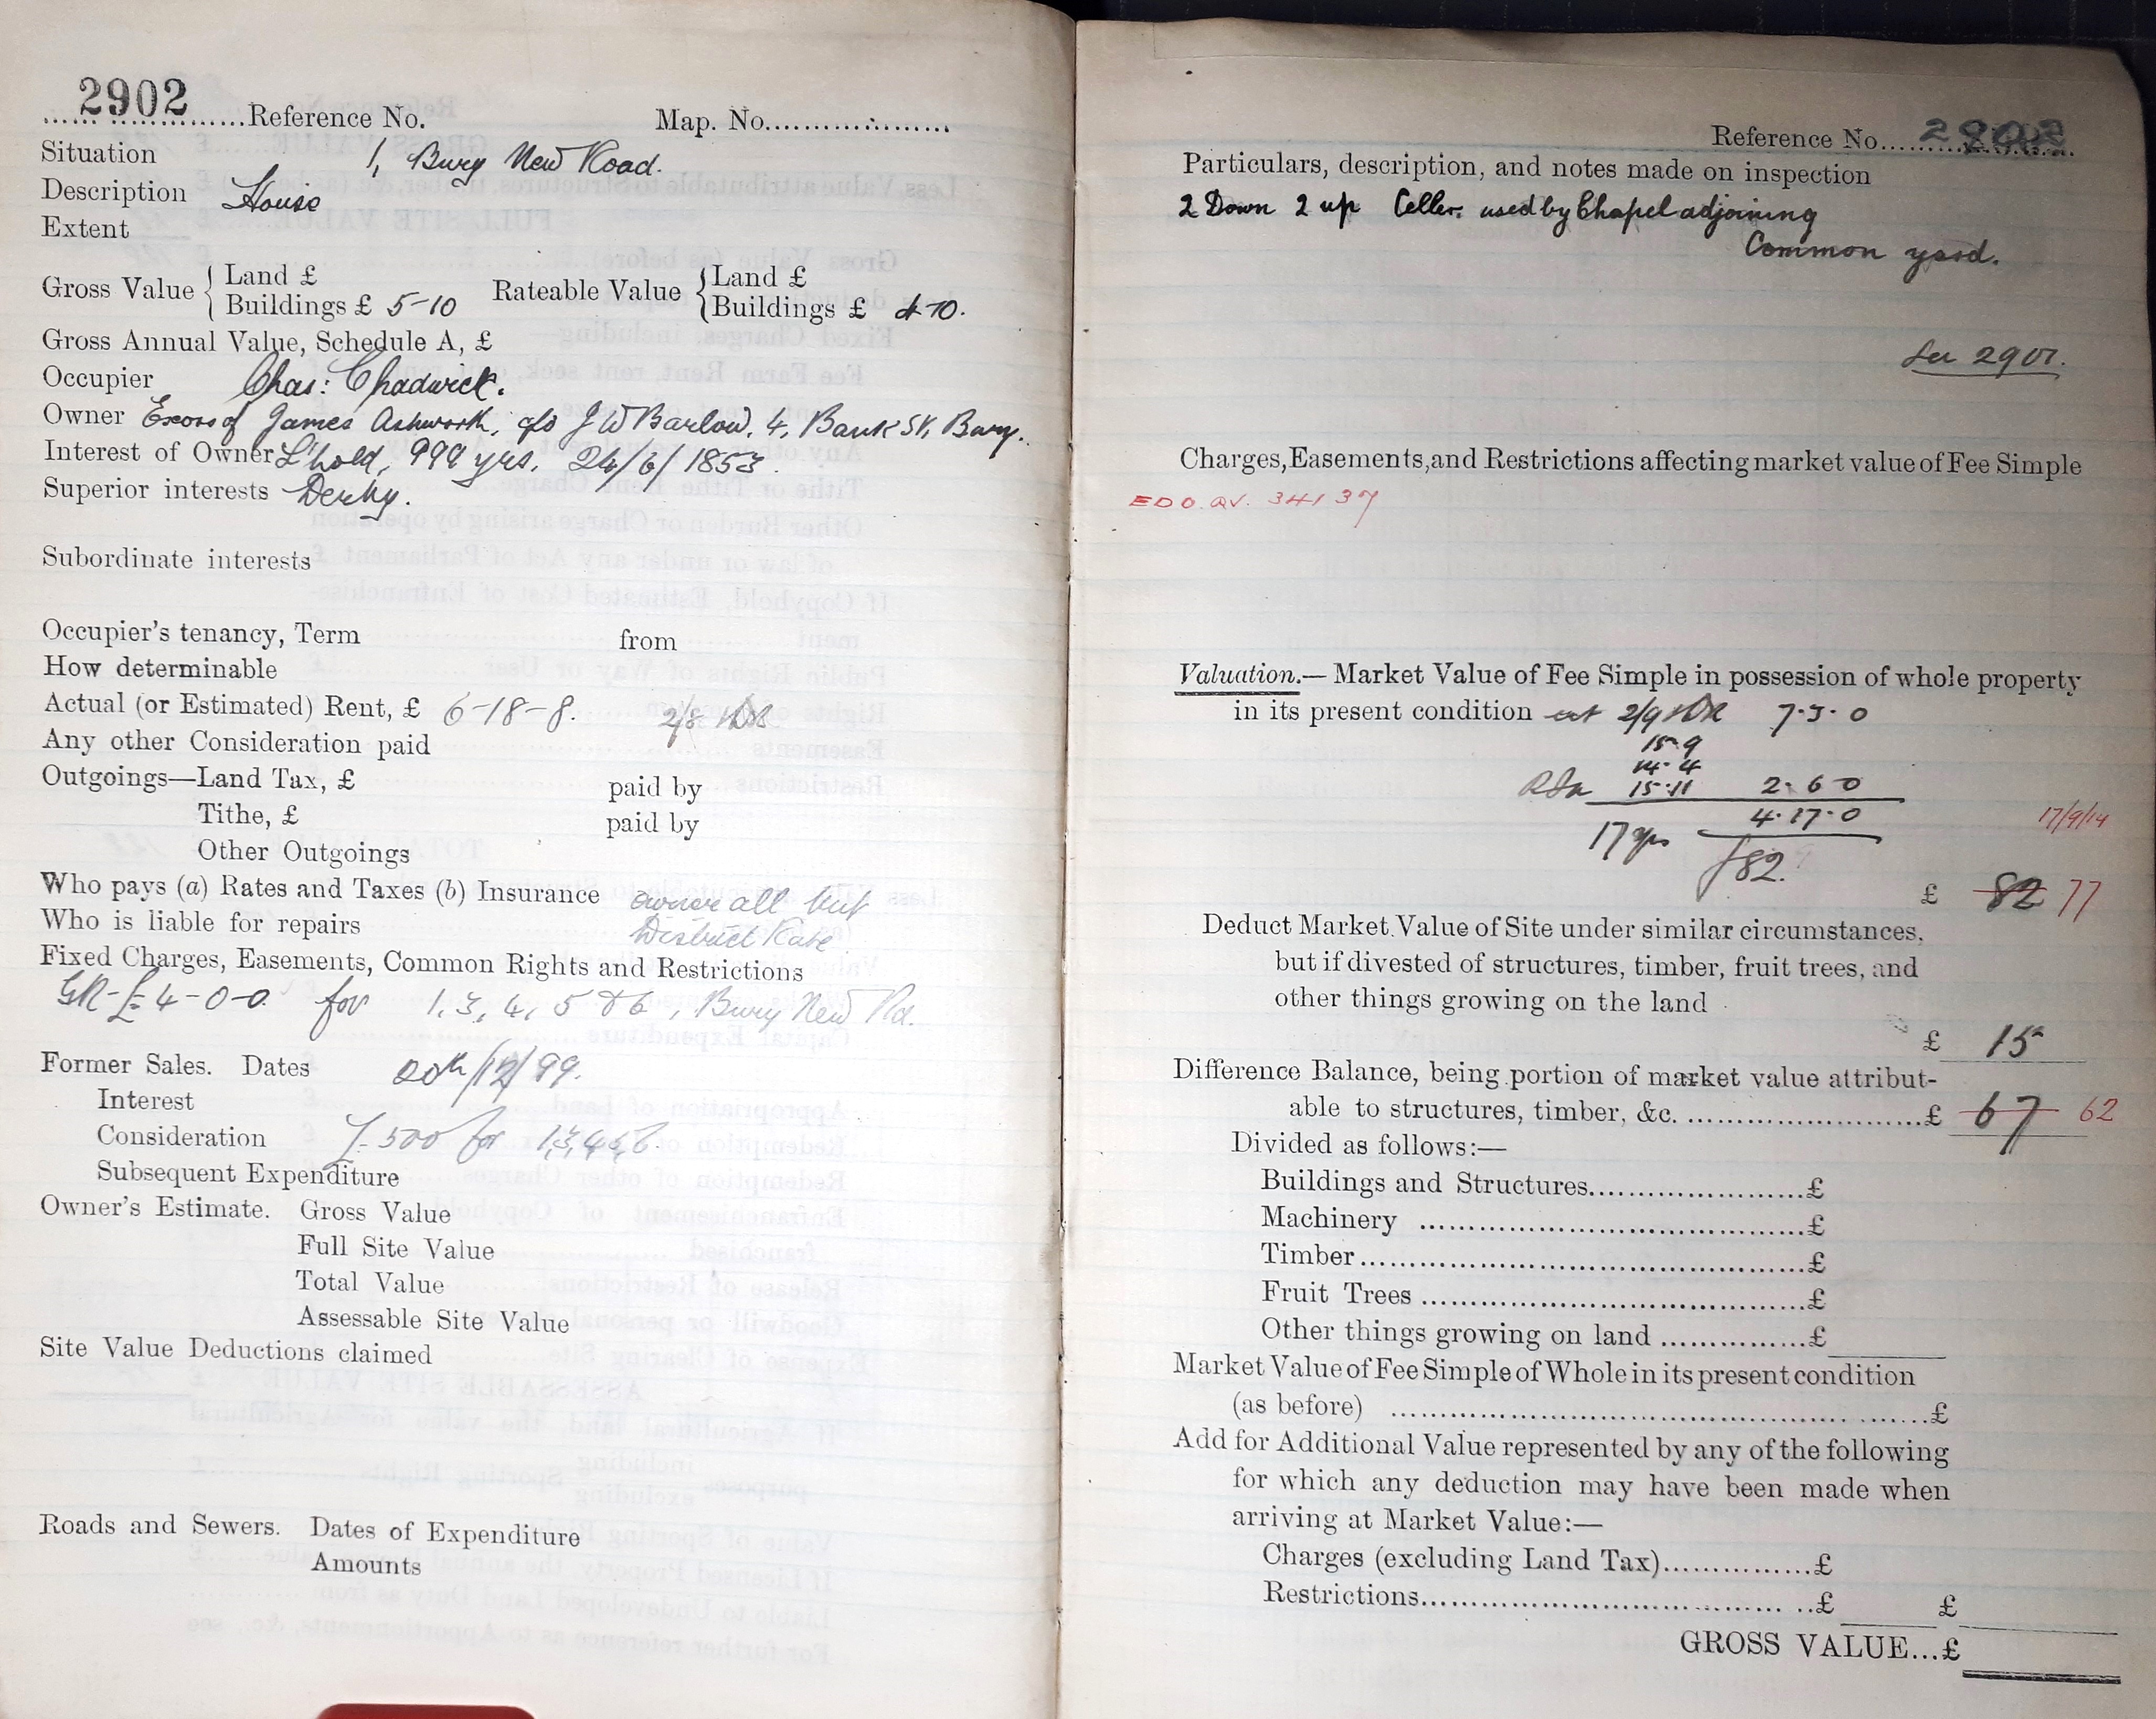 2902
Reference No. Map. No.
Situation 1, Bury New Road.
Description House
Extent
Gross Value { Land £
Buildings £ 5-10 Rateable Value { Land £
Buildings £ 4-10.
Gross Annual Value, Schedule A, £
Occupier Chas: Chadwick.
Owner Exors of James Ashworth, c/o J W Barlow, 4, Bank St, Bury.
Interest of Owner L'hold, 999 yrs, 24/6/1853.
Superior interests Derby.
Subordinate interests
Occupier's tenancy, Term from
How determinable
Actual (or Estimated) Rent, £ 6-18-8. 2/8
Any other Consideration paid
Outgoings—Land Tax, £ paid by
Tithe, £ paid by
Other Outgoings
Who pays (a) Rates and Taxes (b) Insurance owner all but
Who is liable for repairs District Rate
Fixed Charges, Easements, Common Rights and Restrictions
GR-£4-0-0 for 1, 3, 4, 5 & 6, Bury New Rd.
Former Sales. Dates /12/99.
Interest
Consideration £500 for
Subsequent Expenditure
Owner's Estimate. Gross Value
Full Site Value
Total Value
Assessable Site Value
Site Value Deductions claimed
Roads and Sewers. Dates of Expenditure
Amounts
Reference No. 2902
Particulars, description, and notes made on inspection
2 Down 2 up Celler. used by Chapel adjoining
Common yard.
See 2901.
Charges, Easements, and Restrictions affecting market value of Fee Simple
EDO. QV. 34137
Valuation.— Market Value of Fee Simple in possession of whole property
in its present condition 2/9 7.3.0
15.9
14.4
15.11 2.6.0
4.17.0
17 yrs
£82.
17/9/14
£ 82 77
Deduct Market Value of Site under similar circumstances,
but if divested of structures, timber, fruit trees, and
other things growing on the land
£ 15
Difference Balance, being portion of market value attribut-
able to structures, timber, &c. £ 67 62
Divided as follows:—
Buildings and Structures £
Machinery £
Timber £
Fruit Trees £
Other things growing on land £
Market Value of Fee Simple of Whole in its present condition
(as before) £
Add for Additional Value represented by any of the following
for which any deduction may have been made when
arriving at Market Value:—
Charges (excluding Land Tax) £
Restrictions £ £
GROSS VALUE...£